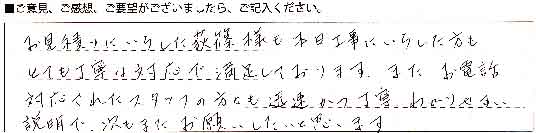 ■ご意見、ご感想、ご要望がございましたら、ご記入ください。
お見積りにいらした荻篠様も本日工事にいらした方も
とても丁寧な対応で満足しております。また お電話
対応くれたスタッフの方も迅速かつ丁寧 わかりやすい
説明で、次もまた お願いしたいと思います